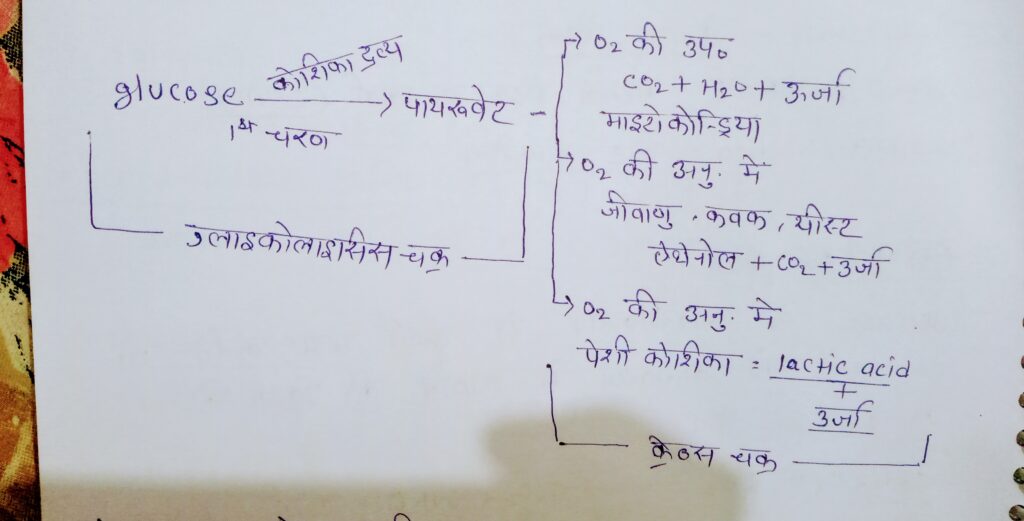 glucose कोशिका द्रव्य → पायरूवेट -
1st चरण
ग्लाइकोलाइसिस चक्र
→ O2 की उप०
CO2 + H2O + ऊर्जा
माइटोकोन्ड्रिया
→ O2 की अनु. में
जीवाणु, कवक, यीस्ट
ऐथेनोल + CO2 + उर्जा
→ O2 की अनु. मे
पेशी कोशिका = lactic acid
+
उर्जा
क्रेब्स चक्र